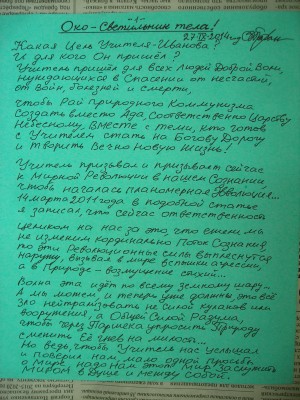 -1-
Око - Светильник тела!
27.IX.2014г
Какая Цель Учителя-Иванова?
И для кого Он пришёл?
Учитель пришёл для всех Людей Доброй Воли
Нуждающихся в Спасении от несчастий,
от Войн, болезней и смерти,
чтобы Рай Природного Коммунизма
Создать вместо Ада, Соответственно Царству
Небесному, Вместе с теми, кто готов
с Учителем стать на Богову Дорогу
и Творить Вечно Новую Жизнь!
Учитель призывал и призывает сейчас
к Мирной Революции в нашем Сознании
чтобы началась планомерная Эволюция...
14 марта 2011 года в подобной статье
я записал, что сейчас ответственность
целиком на нас за это, что если мы
не изменим кординально Поток Сознания,
то эти Революционные силы выплеснутся
наружу, вызывая в мире вспышки агрессии,
а в Природе - возмущение стихий...
Волна эта идёт по всему земному шару...
А мы можем, и теперь уже должны это всё
зло нейтрализовать не Силой кулаков или
вооружения, а Общей Силой Разума,
чтобы через Паршека упросить Природу
сменить Её гнев на милость...
Но ведь, чтобы Учитель нас услышал
и поверил нам, мало одной просьбы
о Мире, надо нам этот Мир заслужить
миром в Душе и между собой.